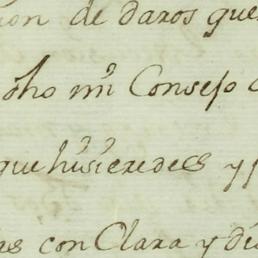 ion de daros que
dho mi Consejo
que hisieredes y p
as con Clara y dis